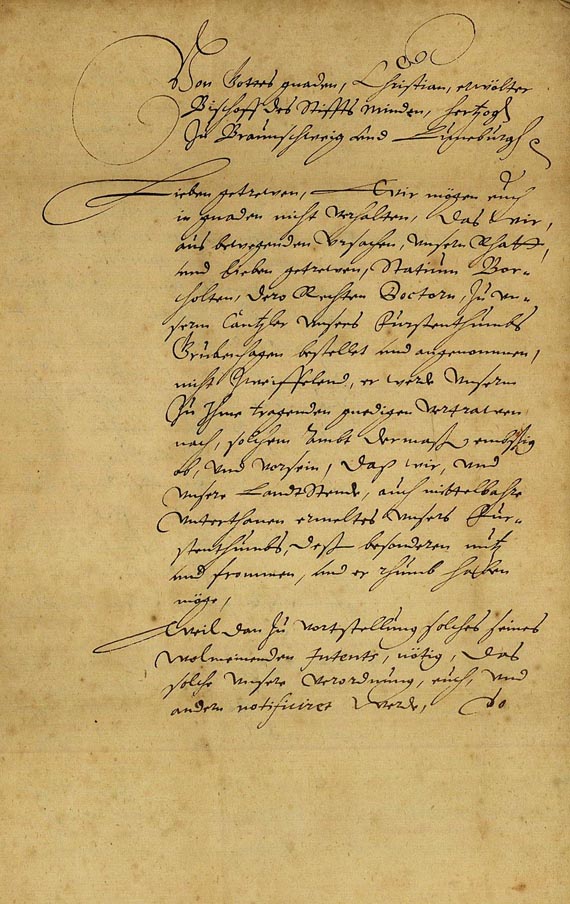 Von Gottes gnaden, Christian, erwölter
Bischoff des Stiffts Minden, Hertzog
Zu Braunschweig und Lüneburgh
Lieben getrewen, Wir mögen euch
in gnaden nicht verhalten, das wir,
aus bewegenden Ursachen, unsern Rhatt,
und lieben getrewen, Statium Bor-
cholten, dero Rechten Doctorn, Zu un-
serm Cantzler unsers Fürstenthumbs
Grubenhagen bestellet und angenommen,
nicht Zweiffelend, er werde unserm
Zu Ihme tragenden gnedigen vertrawen
nach, solchem Ambt dermaß embßig
ob, und vorsein, daß wir, und
unsere LandtStende, auch mittelbahre
Unterthanen ermeltes unsers Fur-
stenthumbs, deß besonderen nutz
und frommen, und er rhumb haben
möge,
Weil dan Zu vortstellung solches seines
wolmeinenden Intents, nötig, das
solche unsere verordnung, euch, und
andern notificiret werde, So